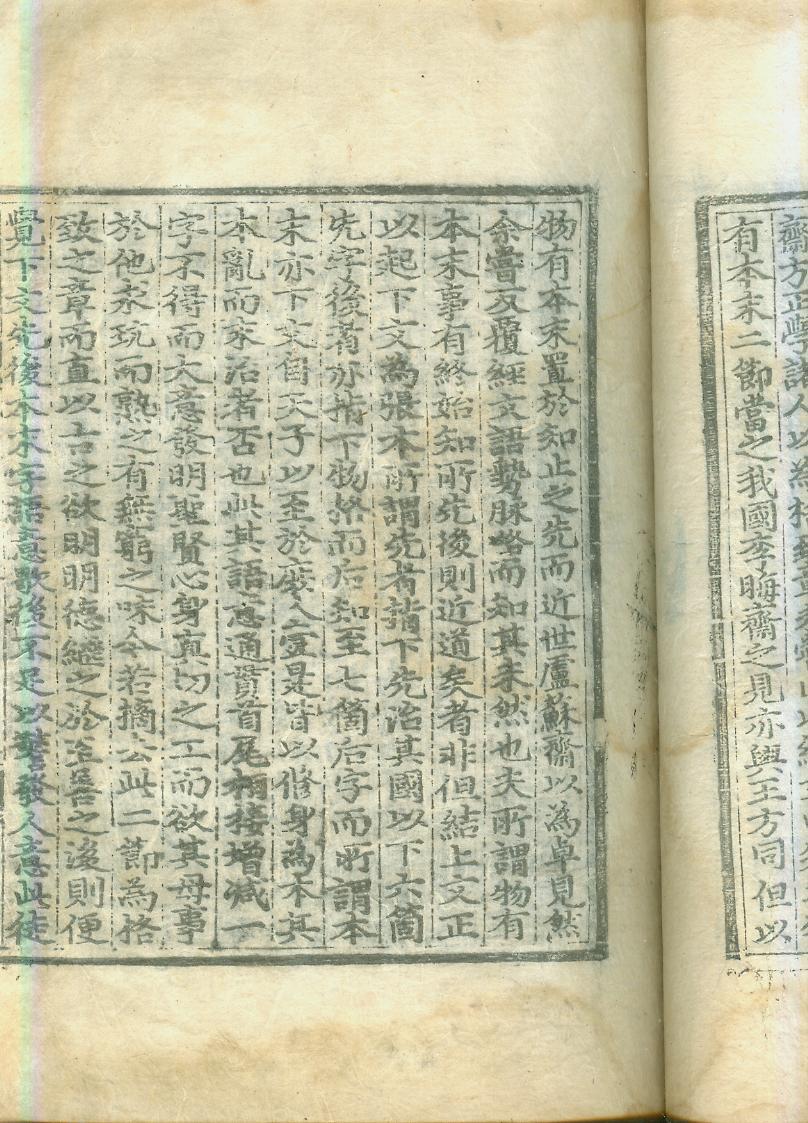 齋方正學諸人以為
有本末二節當之我國李晦齋之見亦與王方同但以
物有本末置於知止之先而近世盧蘇齋以為卓見然
余嘗反覆經文語勢脉絡而知其未然也夫所謂物有
本末事有終始知所先後則近道矣者非但結上文正
以起下文為張本所謂先者指下先治其國以下六箇
先字後者亦指下物格而后知至七箇后字而所謂本
末亦下文自天子以至於庶人壹是皆以修身為本其
本亂而末治者否也此其語意通貫首尾相接增減一
字不得而大意發明聖賢心身真切之工而欲其毋事
於他求玩而熟之有無窮之味今若摘去此二節為格
致之章而直以古之欲明明德繼之於至善之後則便
覺下文先後本末字語意歇後不足以警發人意此徒